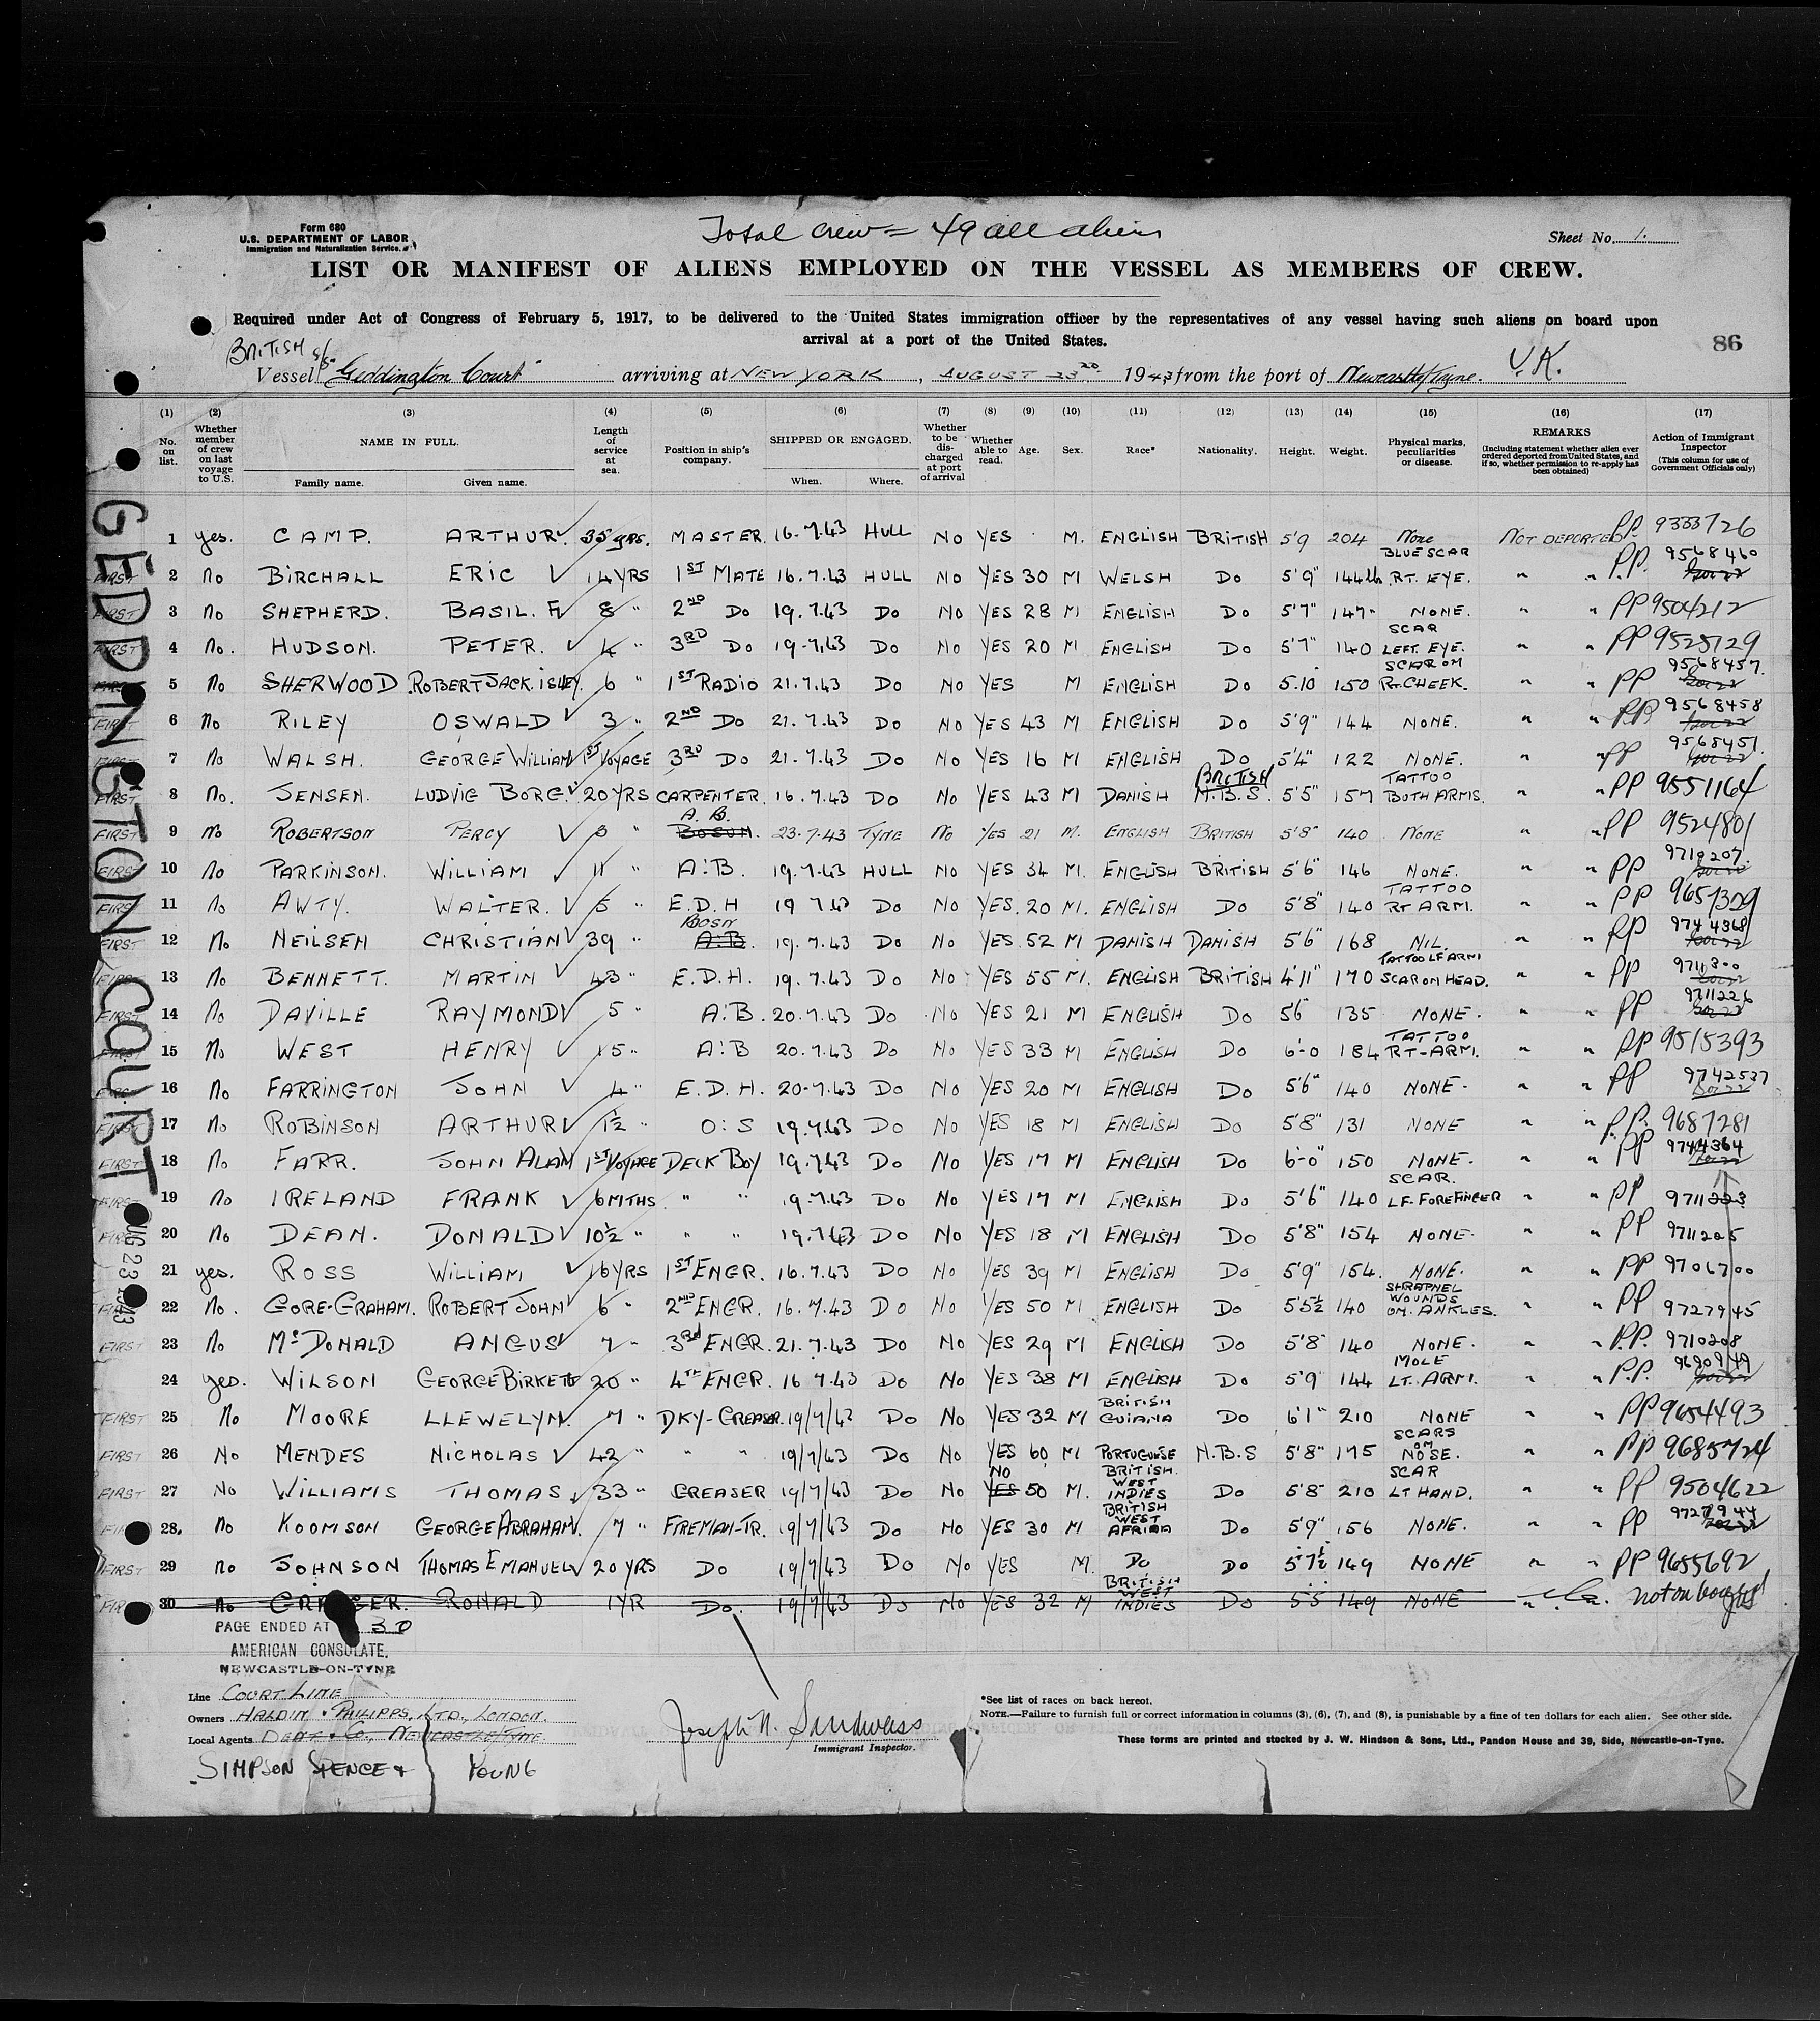 Form 680
U.S. DEPARTMENT OF LABOR
Immigration and Naturalization Service.
Total crew = 49 all aliens
Sheet No. 1.
LIST OR MANIFEST OF ALIENS EMPLOYED ON THE VESSEL AS MEMBERS OF CREW.
Required under Act of Congress of February 5, 1917, to be delivered to the United States immigration officer by the representatives of any vessel having such aliens on board upon
arrival at a port of the United States.
86
BRITISH s/s
Vessel "Geddington Court" arriving at NEW YORK, AUGUST 23 1943 from the port of Newcastle/Tyne. U.K.
(1) (2) (3) (4) (5) (6) (7) (8) (9) (10) (11) (12) (13) (14) (15) (16) (17)
No. on list. Whether member of crew on last voyage to U.S. NAME IN FULL. Family name. Given name. Length of service at sea. Position in ship's company. SHIPPED OR ENGAGED. When. Where. Whether to be discharged at port of arrival Whether able to read. Age. Sex. Race* Nationality. Height. Weight. Physical marks, peculiarities or disease. REMARKS (Including statement whether alien ever ordered deported from United States, and if so, whether permission to re-apply has been obtained) Action of Immigrant Inspector (This column for use of Government Officials only)
GEDDINGTON COURT
AUG 23 1943
1 yes. CAMP. ARTHUR. 35 YRS. MASTER. 16.7.43 HULL NO YES M. ENGLISH BRITISH 5'9 204 None NOT DEPORTED. P.P. 9333726
FIRST 2 No BIRCHALL ERIC 14 YRS 1ST MATE 16.7.43 HULL NO YES 30 M WELSH DO 5'9" 144 lb BLUE SCAR RT. EYE. " " P.P. 9568460
FIRST 3 No SHEPHERD. BASIL. F. 8 " 2ND DO 19.7.43 DO NO YES 28 M ENGLISH DO 5'7" 147 " NONE. " " PP 9504212
FIRST 4 No. HUDSON. PETER. 4 " 3RD DO 19.7.43 DO NO YES 20 M ENGLISH DO 5'7" 140 SCAR LEFT. EYE. " " PP 9525729
FIRST 5 No SHERWOOD ROBERT JACK. ISLEY. 6 " 1ST RADIO 21.7.43 DO NO YES M ENGLISH DO 5.10 150 SCAR ON RT. CHEEK. " " PP 9568457.
FIRST 6 No RILEY OSWALD 3 " 2ND DO 21.7.43 DO NO YES 43 M ENGLISH DO 5'9" 144 NONE. " " PP. 9568458
FIRST 7 No WALSH. GEORGE WILLIAM 1ST VOYAGE 3RD DO 21.7.43 DO NO YES 16 M ENGLISH DO 5'4" 122 NONE. " " PP 9568451.
FIRST 8 No. JENSEN. LUDVIG BORG. 20 YRS CARPENTER. 16.7.43 DO NO YES 43 M DANISH BRITISH N.B.S. 5'5" 157 TATTOO BOTH ARMS. " " PP 9551164
FIRST 9 No ROBERTSON PERCY 5 " A.B. BOSUN. 23.7.43 TYNE No YES 21 M. ENGLISH BRITISH 5'8" 140 NONE " " PP 9524801
FIRST 10 No PARKINSON. WILLIAM 11 " A:B. 19.7.43 HULL NO YES 34 M. ENGLISH BRITISH 5'6" 146 NONE. " " PP 9710207.
FIRST 11 No AWTY. WALTER. 5 " E.D.H 19 7.43 DO NO YES. 20 M. ENGLISH DO 5'8" 140 TATTOO RT ARM. " " PP 9657309
FIRST 12 No NEILSEN CHRISTIAN 39 " BOSN A:B. 19.7.43 DO NO YES. 52 M DANISH DANISH 5'6" 168 NIL. " " PP 9744368
FIRST 13 No BENNETT. MARTIN 43 " E.D.H. 19.7.43 DO NO YES 55 M. ENGLISH BRITISH 4'11" 170 TATTOO LF ARM SCAR ON HEAD. " " PP 9711300
FIRST 14 No DAVILLE RAYMOND 5 " A:B. 20.7.43 DO NO YES 21 M ENGLISH DO 5'6 135 NONE. " " PP 9711226
FIRST 15 No WEST HENRY 15 " A:B 20.7.43 DO NO YES 33 M ENGLISH DO 6'-0 184 TATTOO RT-ARM. " " PP 9515393
FIRST 16 No FARRINGTON JOHN 4 " E.D.H. 20-7.43 DO NO YES 20 M ENGLISH DO 5'6" 140 NONE. " " PP 9742537
FIRST 17 No ROBINSON ARTHUR 1½ " O:S 19.7.43 DO NO YES 18 M ENGLISH DO 5'8" 131 NONE " " P.P. 9687281
FIRST 18 No FARR. JOHN ALAN 1ST VOYAGE DECK BOY 19.7.43 DO NO YES 17 M ENGLISH DO 6'-0" 150 NONE. " " PP 9744364
FIRST 19 No IRELAND FRANK 6 MTHS " " 19.7.43 DO NO YES 17 M ENGLISH DO 5'6" 140 SCAR. LF. FOREFINGER " " PP 9711223
FIRST 20 No DEAN. DONALD 10½ " " " 19.7.43 DO NO YES 18 M ENGLISH DO 5'8" 154 NONE. " " PP 9711205
21 yes. ROSS WILLIAM 16 YRS 1ST ENGR. 16.7.43 DO NO YES 39 M ENGLISH DO 5'9" 154. NONE. " " PP 9706700
FIRST 22 No. GORE-GRAHAM. ROBERT JOHN 6 " 2ND ENGR. 16.7.43 DO NO YES 50 M ENGLISH DO 5'5½ 140 SHRAPNEL WOUNDS ON. ANKLES. " " PP 9727945
FIRST 23 No McDONALD ANGUS 7 " 3Rd ENGR. 21.7.43 DO NO YES 29 M ENGLISH DO 5'8" 140 NONE. " " P.P. 9710208
24 yes. WILSON GEORGE BIRKETT 20 " 4TH ENGR. 16 7.43 DO NO YES 38 M ENGLISH DO 5'9 144 MOLE LT. ARM. " " P.P. 9690949
FIRST 25 No MOORE LLEWELYN. 7 " DKY-GREASER. 19/7/43 DO NO YES 32 M BRITISH GUIANA DO 6'1" 210 NONE " " PP 9654493
FIRST 26 No MENDES NICHOLAS 42 " " " 19/7/43 DO NO YES 60 M PORTUGUESE N.B.S 5'8" 175 SCARS ON NOSE. " " PP 9685724
FIRST 27 No WILLIAMS THOMAS 33 " GREASER 19/7/43 DO NO NO YES 50 M. BRITISH WEST INDIES DO 5'8" 210 SCAR LT HAND. " " PP 9504622
FIRST 28. No KOOMSON GEORGE ABRAHAM. 7 " FIREMAN-TR. 19/7/43 DO NO YES 30 M BRITISH WEST AFRICA DO 5'9" 156 NONE. " " PP 9727944
FIRST 29 No JOHNSON THOMAS EMANUEL 20 YRS DO 19/7/43 DO NO YES M. DO DO 5'7½ 149 NONE " " PP 9655692
FIRST 30 No RONALD 1 YR DO. 19/7/43 DO NO YES 32 M BRITISH WEST INDIES DO 5'5 149 NONE not on board
PAGE ENDED AT 30
AMERICAN CONSULATE,
NEWCASTLE-ON-TYNE
Line COURT LINE
Owners HALDIN & PHILIPPS, LTD., LONDON.
Local Agents DENT & Co., NEWCASTLE/TYNE
SIMPSON SPENCE & YOUNG
Joseph N. Sandweiss
Immigrant Inspector.
*See list of races on back hereof.
NOTE.—Failure to furnish full or correct information in columns (3), (6), (7), and (8), is punishable by a fine of ten dollars for each alien. See other side.
These forms are printed and stocked by J. W. Hindson & Sons, Ltd., Pandon House and 39, Side, Newcastle-on-Tyne.